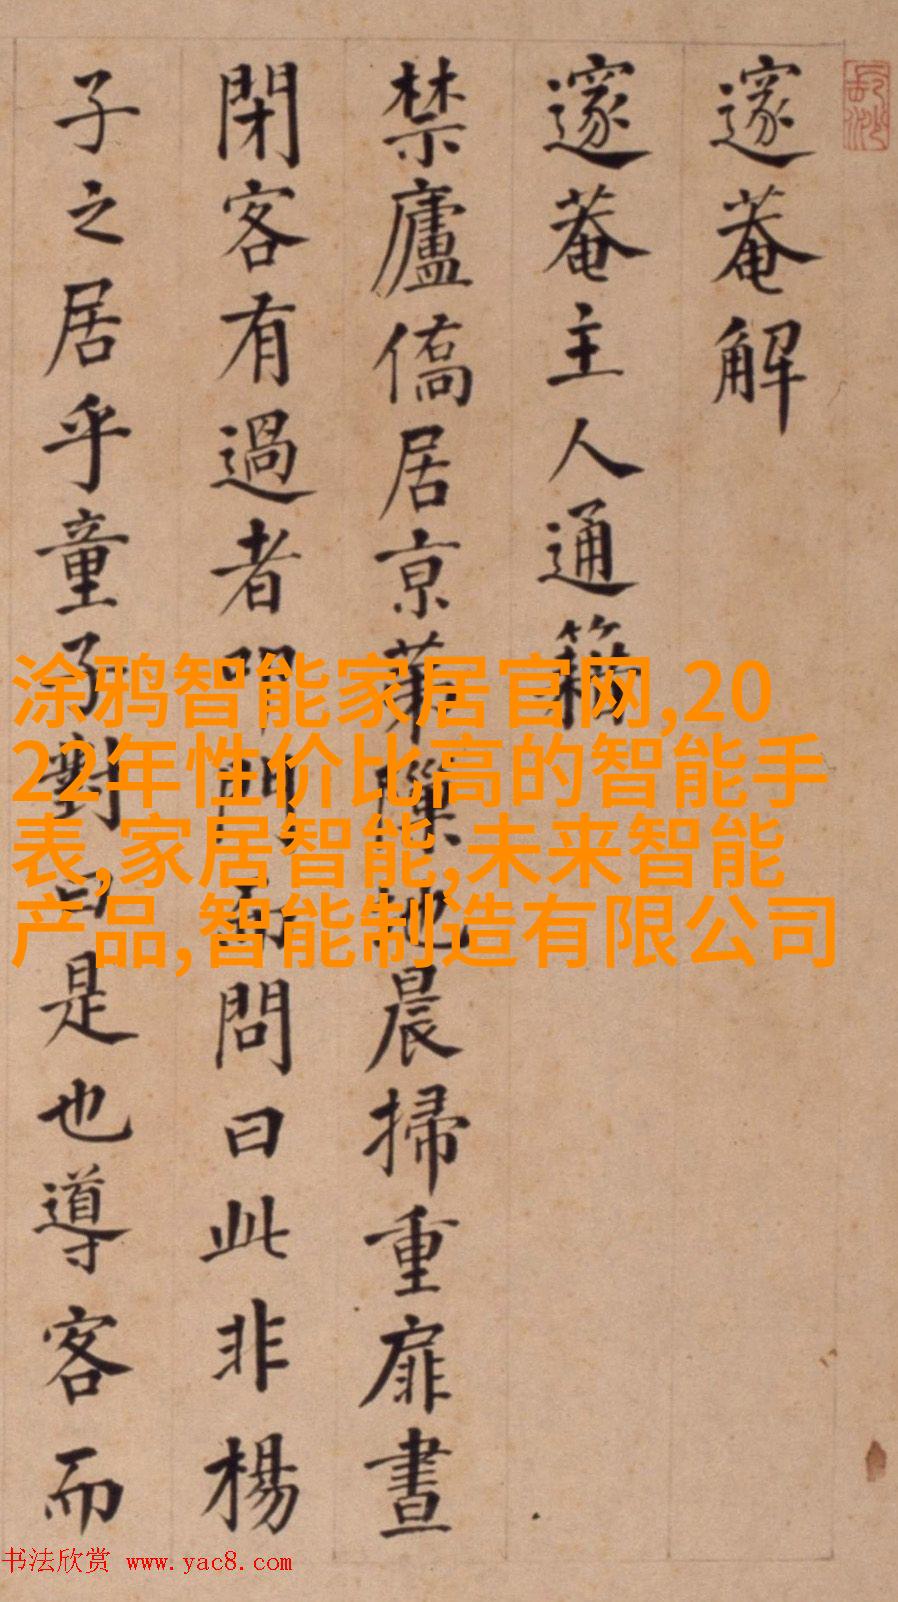 邃菴解
邃菴主人通籍
禁廬僑居京苐隟地晨掃重扉晝
閉客有過者叩門而問曰此非楊
子之居乎童子對曰是也導客而
涂鸦智能家居官网,20
22年性价比高的智能手
表,家居智能,未来智能
产品,智能制造有限公司
书法欣赏 www.yac8.com